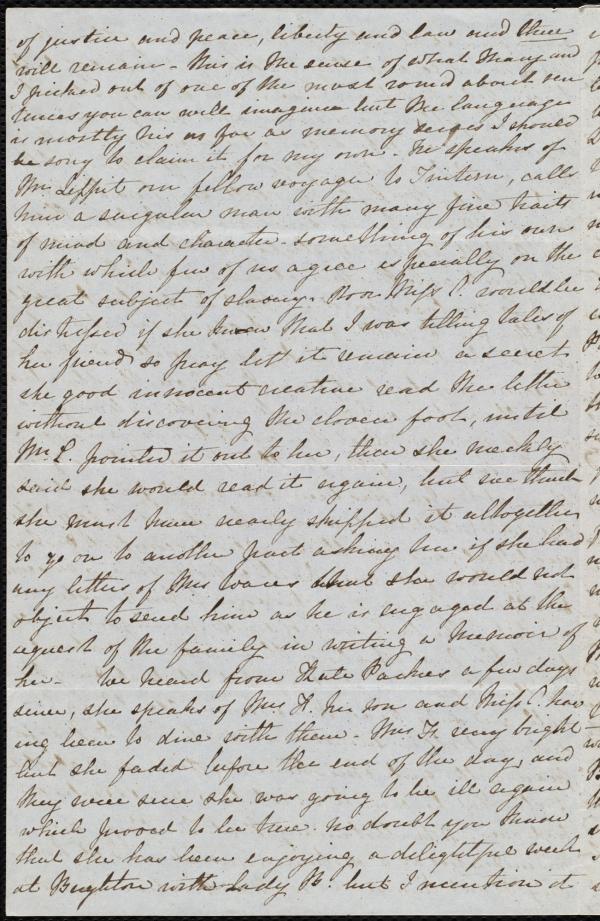 of justice and peace, liberty and law and these
will remain - this is the sense of what Mary and
I picked out of one of the most round about sen
tences you can well imagine but the language
is mostly his as far as memory serves I should
be sorry to claim it for my own - He speaks of
Mr. Leffit our fellow voyager to Tintern, calls
him a singular man with many fine traits
of mind and character - something of his own
with which few of us agree especially on the
great subject of slavery. Poor Miss C. would be
distressed if she knew that I was telling tales of
her friend so pray let it remain a secret
she good innocent creature read the letter
without discovering the cloven foot, until
Mr. L. pointed it out to her, then she meekly
said she would read it again, but we think
she must have nearly skipped it altogether
to go on to another part asking her if she had
any letters of Mrs. Wares that she would not
object to send him as he is engaged at the
request of the family in writing a Memoir of
her - We heard from Kate Parker a few days
since, she speaks of Mrs. F. her son and Miss C. hav
ing been to dine with them - Mrs. F. very bright
but she faded before the end of the day, and
they were sure she was going to be ill again
which proved to be true. no doubt you know
that she has been enjoying a delightful week
at Brighton with Lady B. but I mention it